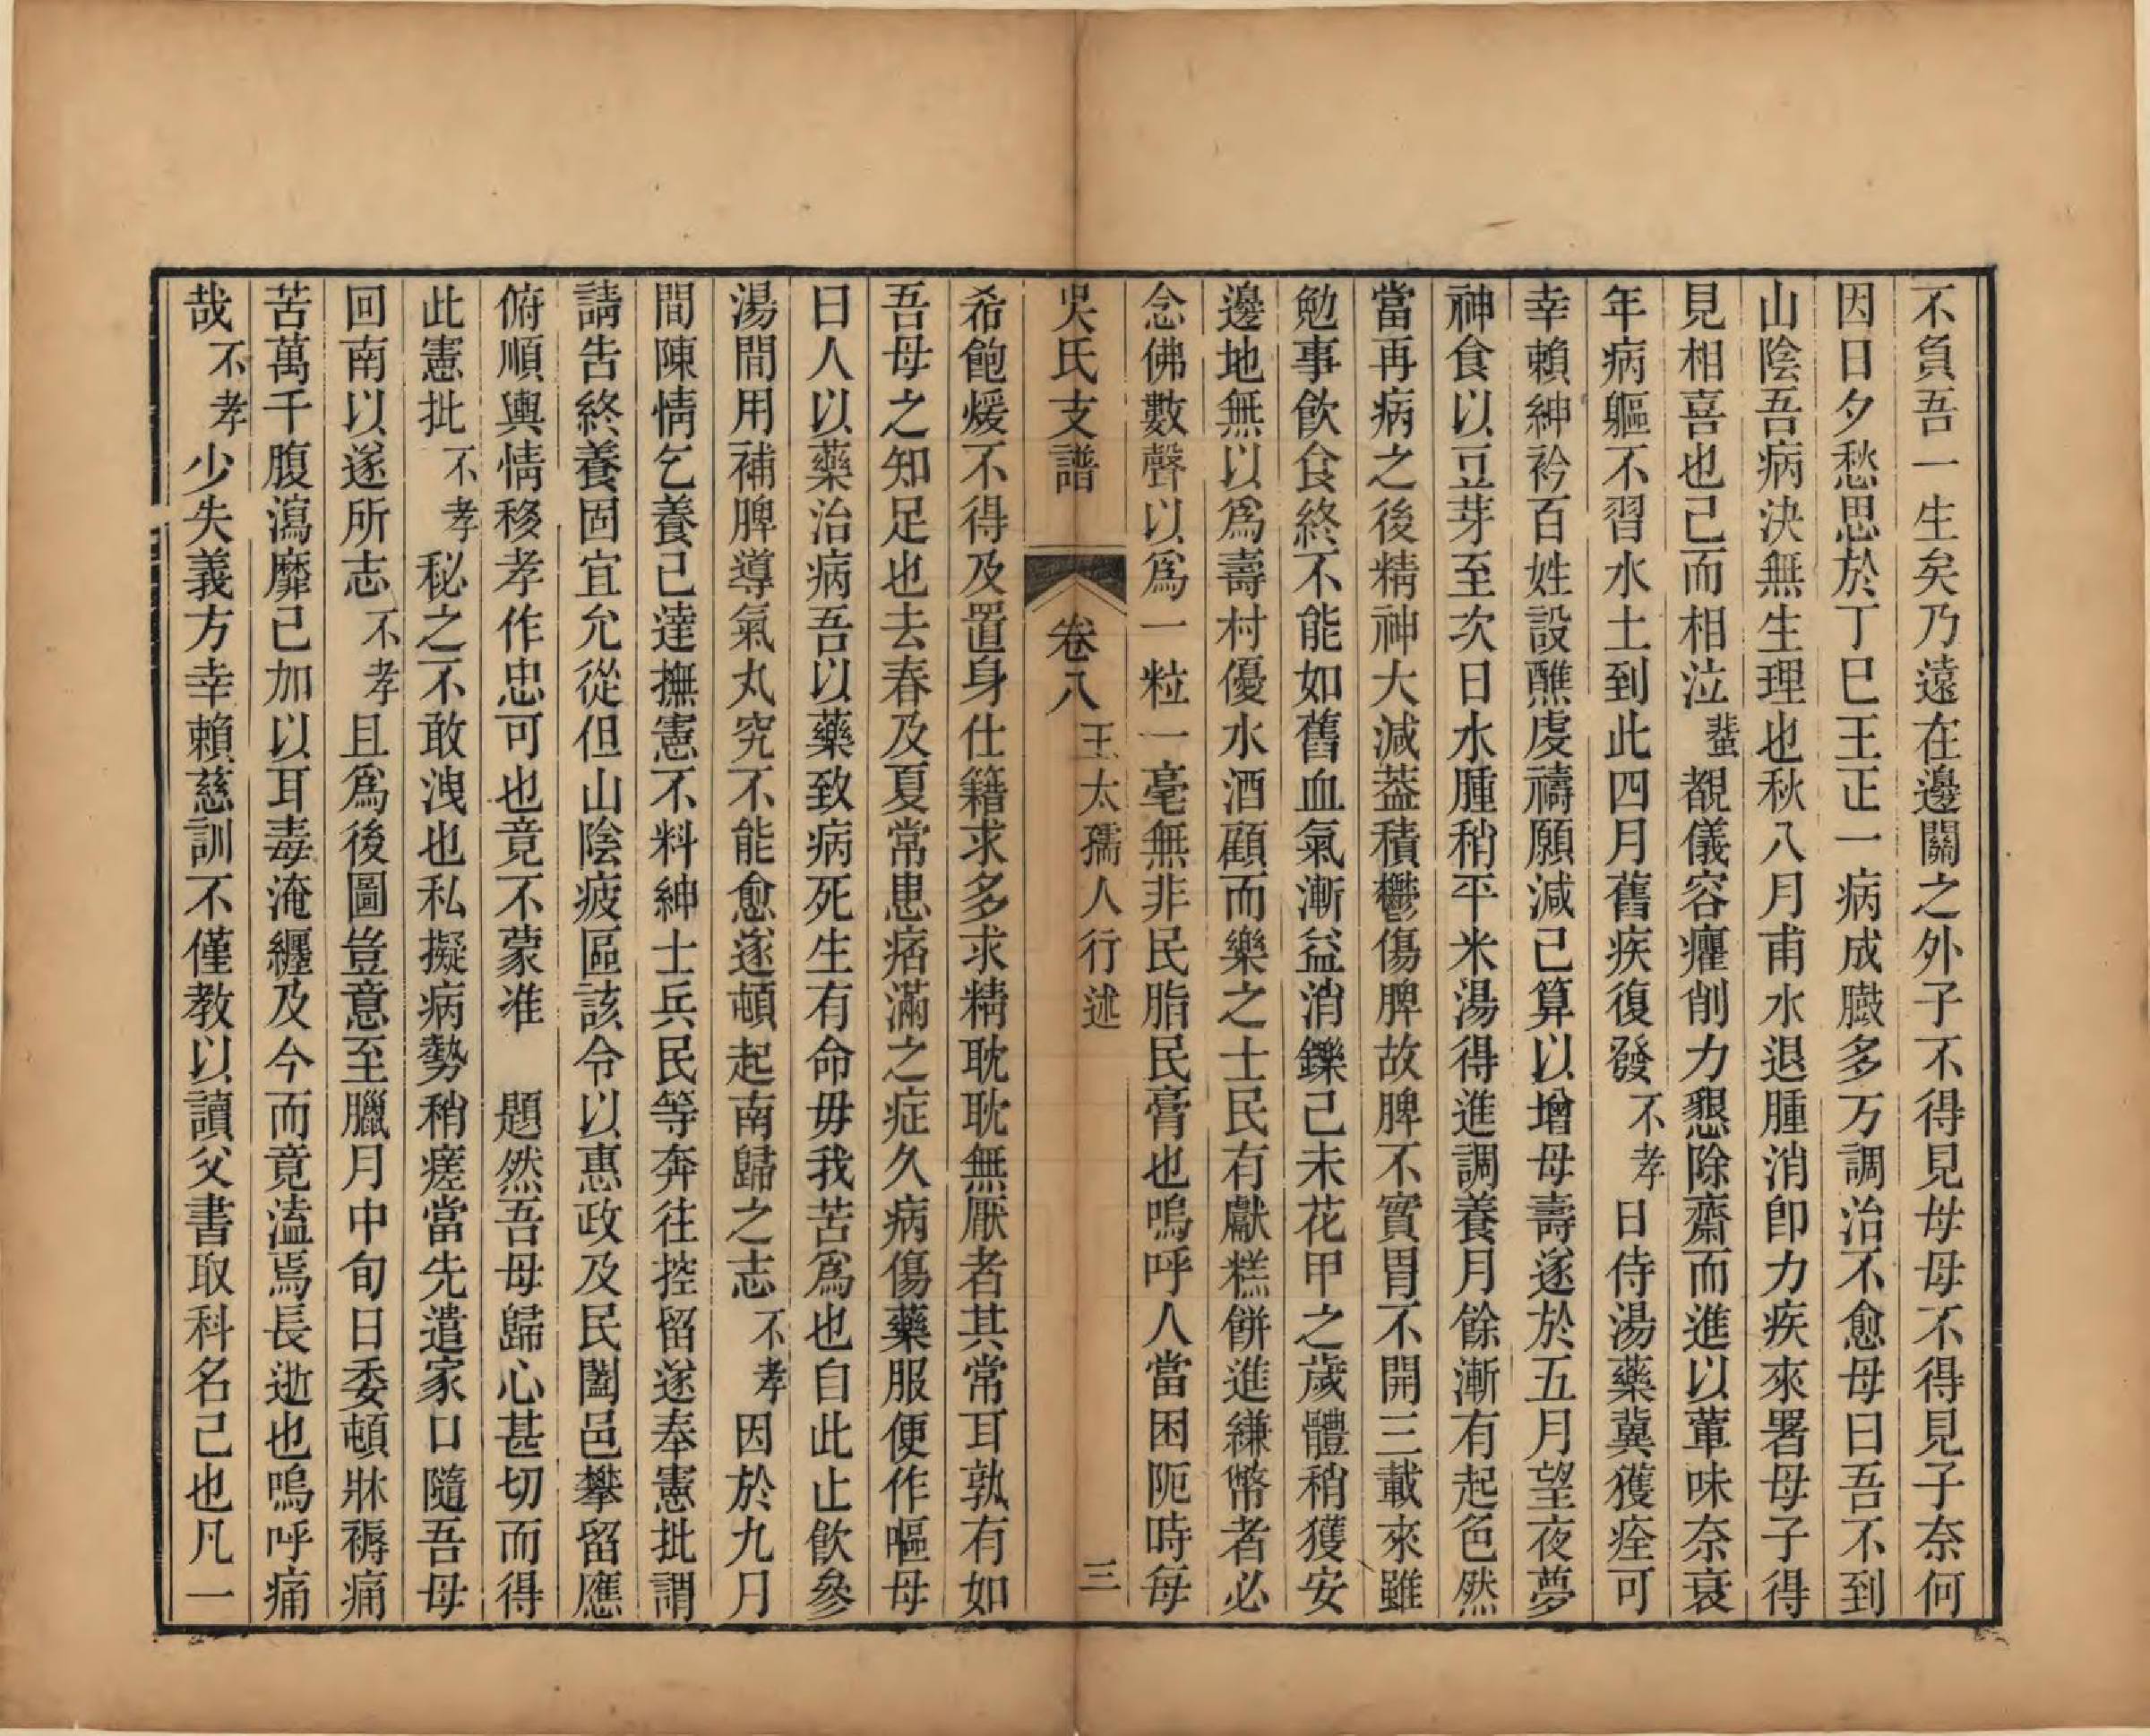 不負吾一生矣乃遠在邊關之外子不得見母母不得見子奈何
因日夕愁思於丁巳王正一病成臌多方調治不愈母曰吾不到
山陰吾病決無生理也秋八月甫水退腫消卽力疾來署母子得
見相喜也已而相泣蜚覩儀容癯削力懇除齋而進以葷味奈衰
年病軀不習水土到此四月舊疾復發不孝日侍湯藥冀獲痊可
幸賴紳衿百姓設醮虔禱願減己算以增母壽遂於五月望夜夢
神食以豆芽至次日水腫稍平米湯得進調養月餘漸有起色然
當再病之後精神大減葢積鬱傷脾故脾不實胃不開三載來雖
勉事飲食終不能如舊血氣漸益消鑠己未花甲之歲體稍獲安
邊地無以爲壽村優水酒顧而樂之士民有獻糕餅進縑幣者必
念佛數聲以爲一粒一毫無非民脂民膏也嗚呼人當困阨時每
吳氏支譜 卷八 王太孺人行述 三
希飽煖不得及置身仕籍求多求精耽耽無厭者其常耳孰有如
吾母之知足也去春及夏常患痞滿之症久病傷藥服便作嘔母
曰人以藥治病吾以藥致病死生有命毋我苦爲也自此止飲參
湯間用補脾導氣丸究不能愈遂頓起南歸之志不孝因於九月
間陳情乞養已達撫憲不料紳士兵民等奔往控留遂奉憲批謂
請告終養固宜允從但山陰疲區該令以惠政及民闔邑攀留應
俯順輿情移孝作忠可也竟不蒙准 題然吾母歸心甚切而得
此憲批不孝秘之不敢洩也私擬病勢稍瘥當先遣家口隨吾母
回南以遂所志不孝且爲後圖豈意至臘月中旬日委頓牀褥痛
苦萬千腹瀉靡已加以耳毒淹纏及今而竟溘焉長逝也嗚呼痛
哉不孝少失義方幸賴慈訓不僅教以讀父書取科名已也凡一